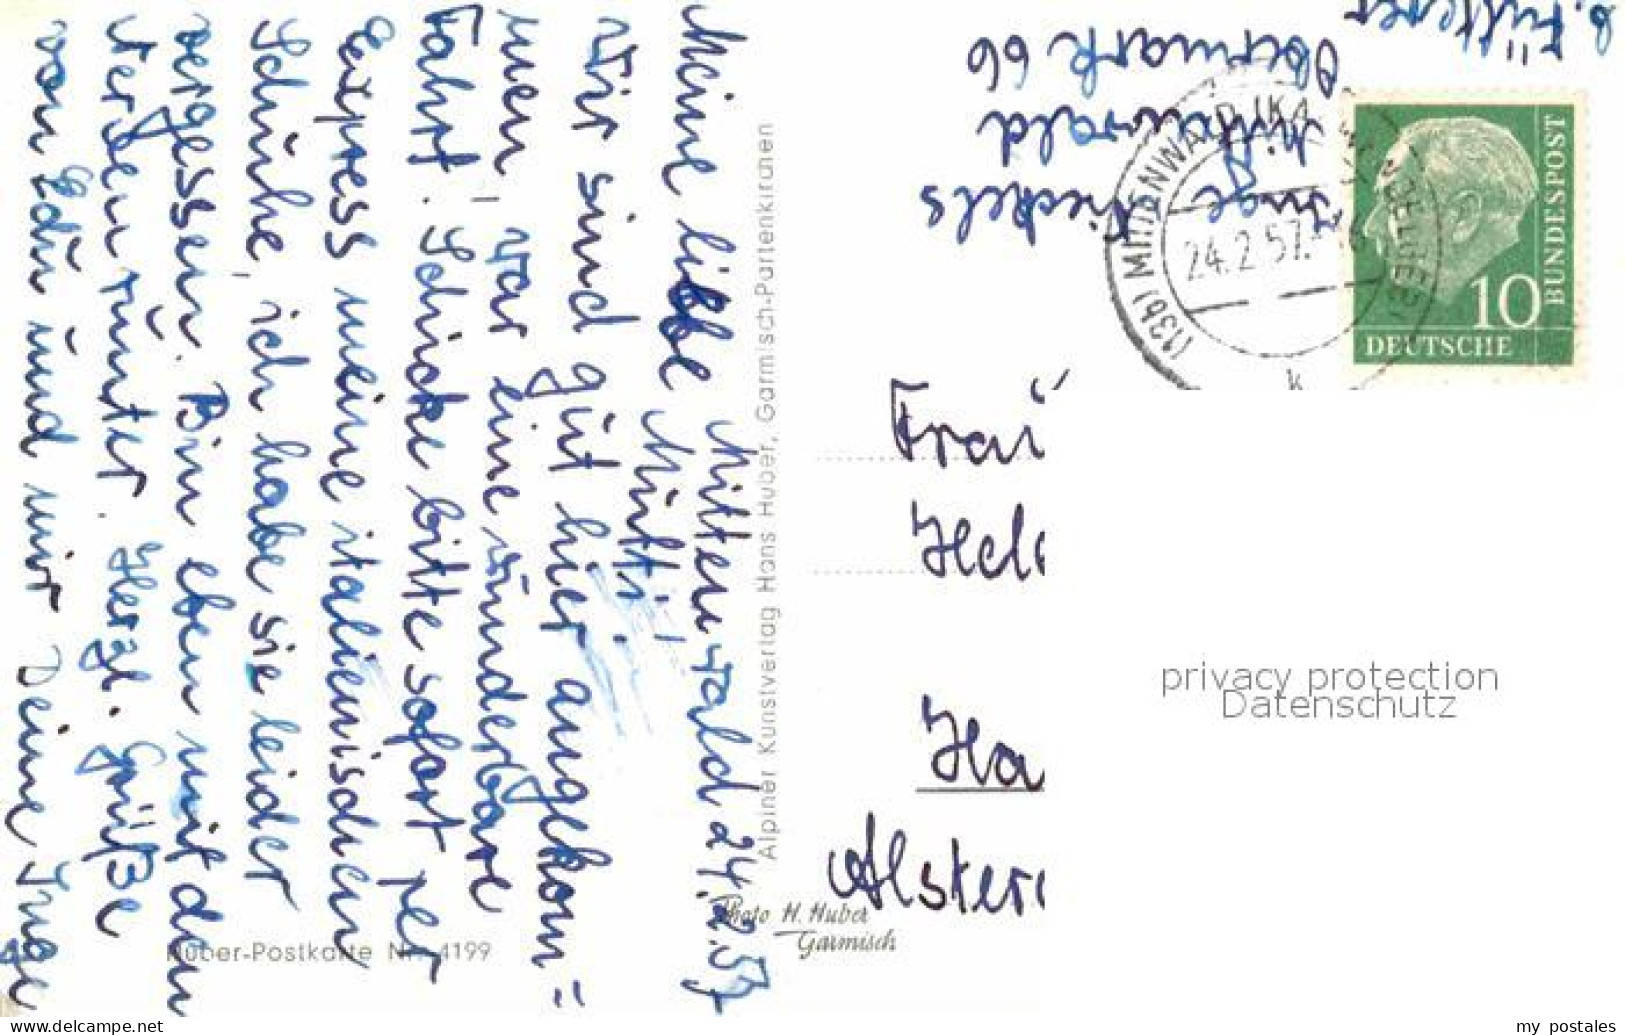 Mittenwald 24.2.57
Meine liebe Mutti,
Wir sind gut hier angekom=
men, war eine wunderbare
Fahrt. Schicke bitte sofort per
Express meine italienischen
Schuhe, ich habe sie leider
vergessen. Bin eben mit den
Herzl. Grüße
von Edu und mir Deine Inge
Alpiner Kunstverlag Hans Huber, Garmisch-Partenkirchen
Huber-Postkarte Nr. 4199
Photo H. Huber
Garmisch
Inge
Mittenwald
Obermark 66
(13b) MITTENWALD
24.2.57
k
BUNDESPOST
10
DEUTSCHE
Frau
Hel
Ha
Alster
privacy protection
Datenschutz
www.delcampe.net
my_postales